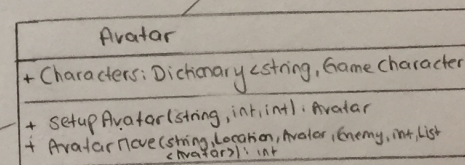 Avatar
+ Characters: Dictionary<string, Game Character
+ setupAvatar(string, int, int): Avatar
+ AvatarMove(string, Location, Avatar, Enemy, int, List
<Avatar>): int